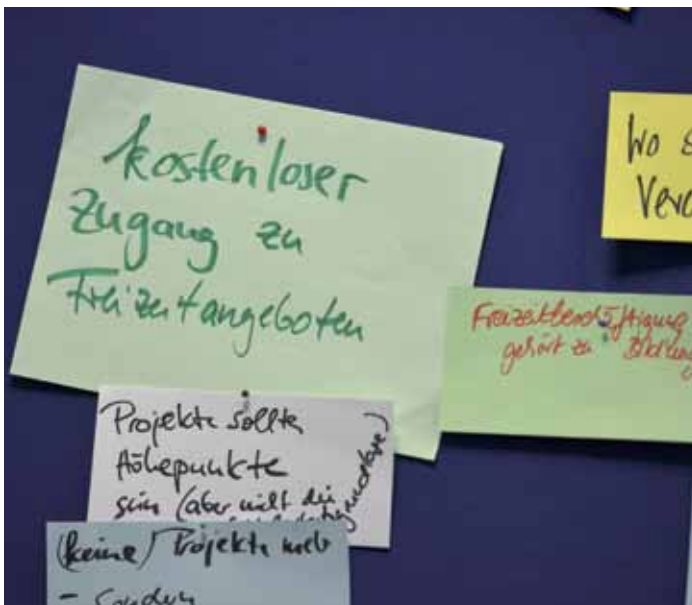 kostenloser
Zugang zu
Freizeitangeboten
Wo s
Verd
Freizeitbeschäftigung
gehört zu Bildung
Projekte sollten
Höhepunkte
sein (aber nicht die
(keine) Projekte mehr
- Sondern